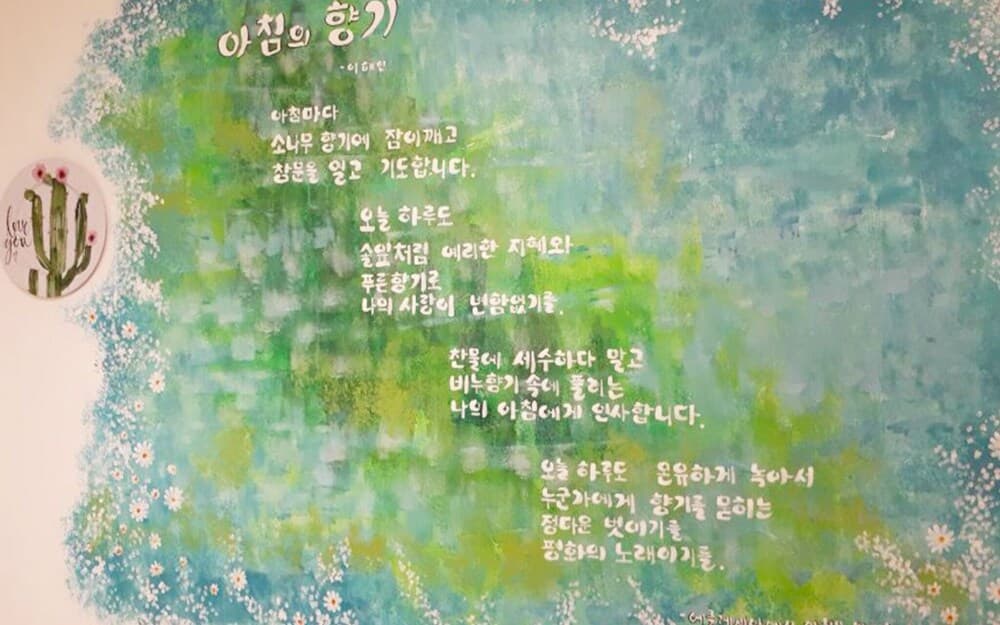 아침의 향기
- 이해인
아침마다
소나무 향기에 잠이깨고
창문을 열고 기도합니다.
오늘 하루도
솔잎처럼 예리한 지혜와
푸른향기로
나의 사랑이 변함없기를.
찬물에 세수하다 말고
비누향기 속에 풀리는
나의 아침에게 인사합니다.
오늘 하루도 온유하게 녹아서
누군가에게 향기를 묻히는
정다운 벗이기를
평화의 노래이기를.
love
you